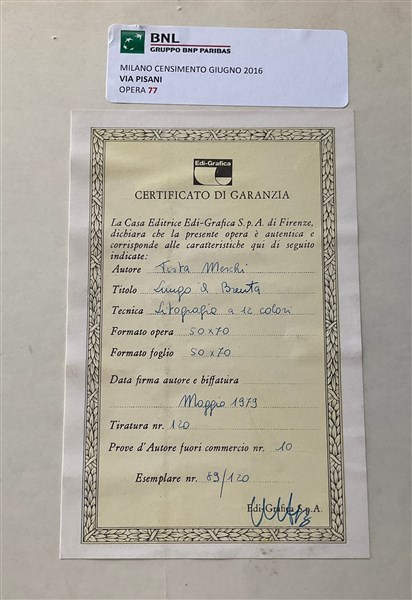 BNL
GRUPPO BNP PARIBAS
MILANO CENSIMENTO GIUGNO 2016
VIA PISANI
OPERA 77
Edi-Grafica
CERTIFICATO DI GARANZIA
La Casa Editrice Edi-Grafica S.p.A. di Firenze,
dichiara che la presente opera è autentica e
corrisponde alle caratteristiche qui di seguito
indicate:
Autore Testa Meschi
Titolo Lungo il Brenta
Tecnica Litografia a 12 colori
Formato opera 50x70
Formato foglio 50x70
Data firma autore e biffatura
Maggio 1979
Tiratura nr. 120
Prove d'Autore fuori commercio nr. 10
Esemplare nr. 89/120
Edi-Grafica S.p.A.